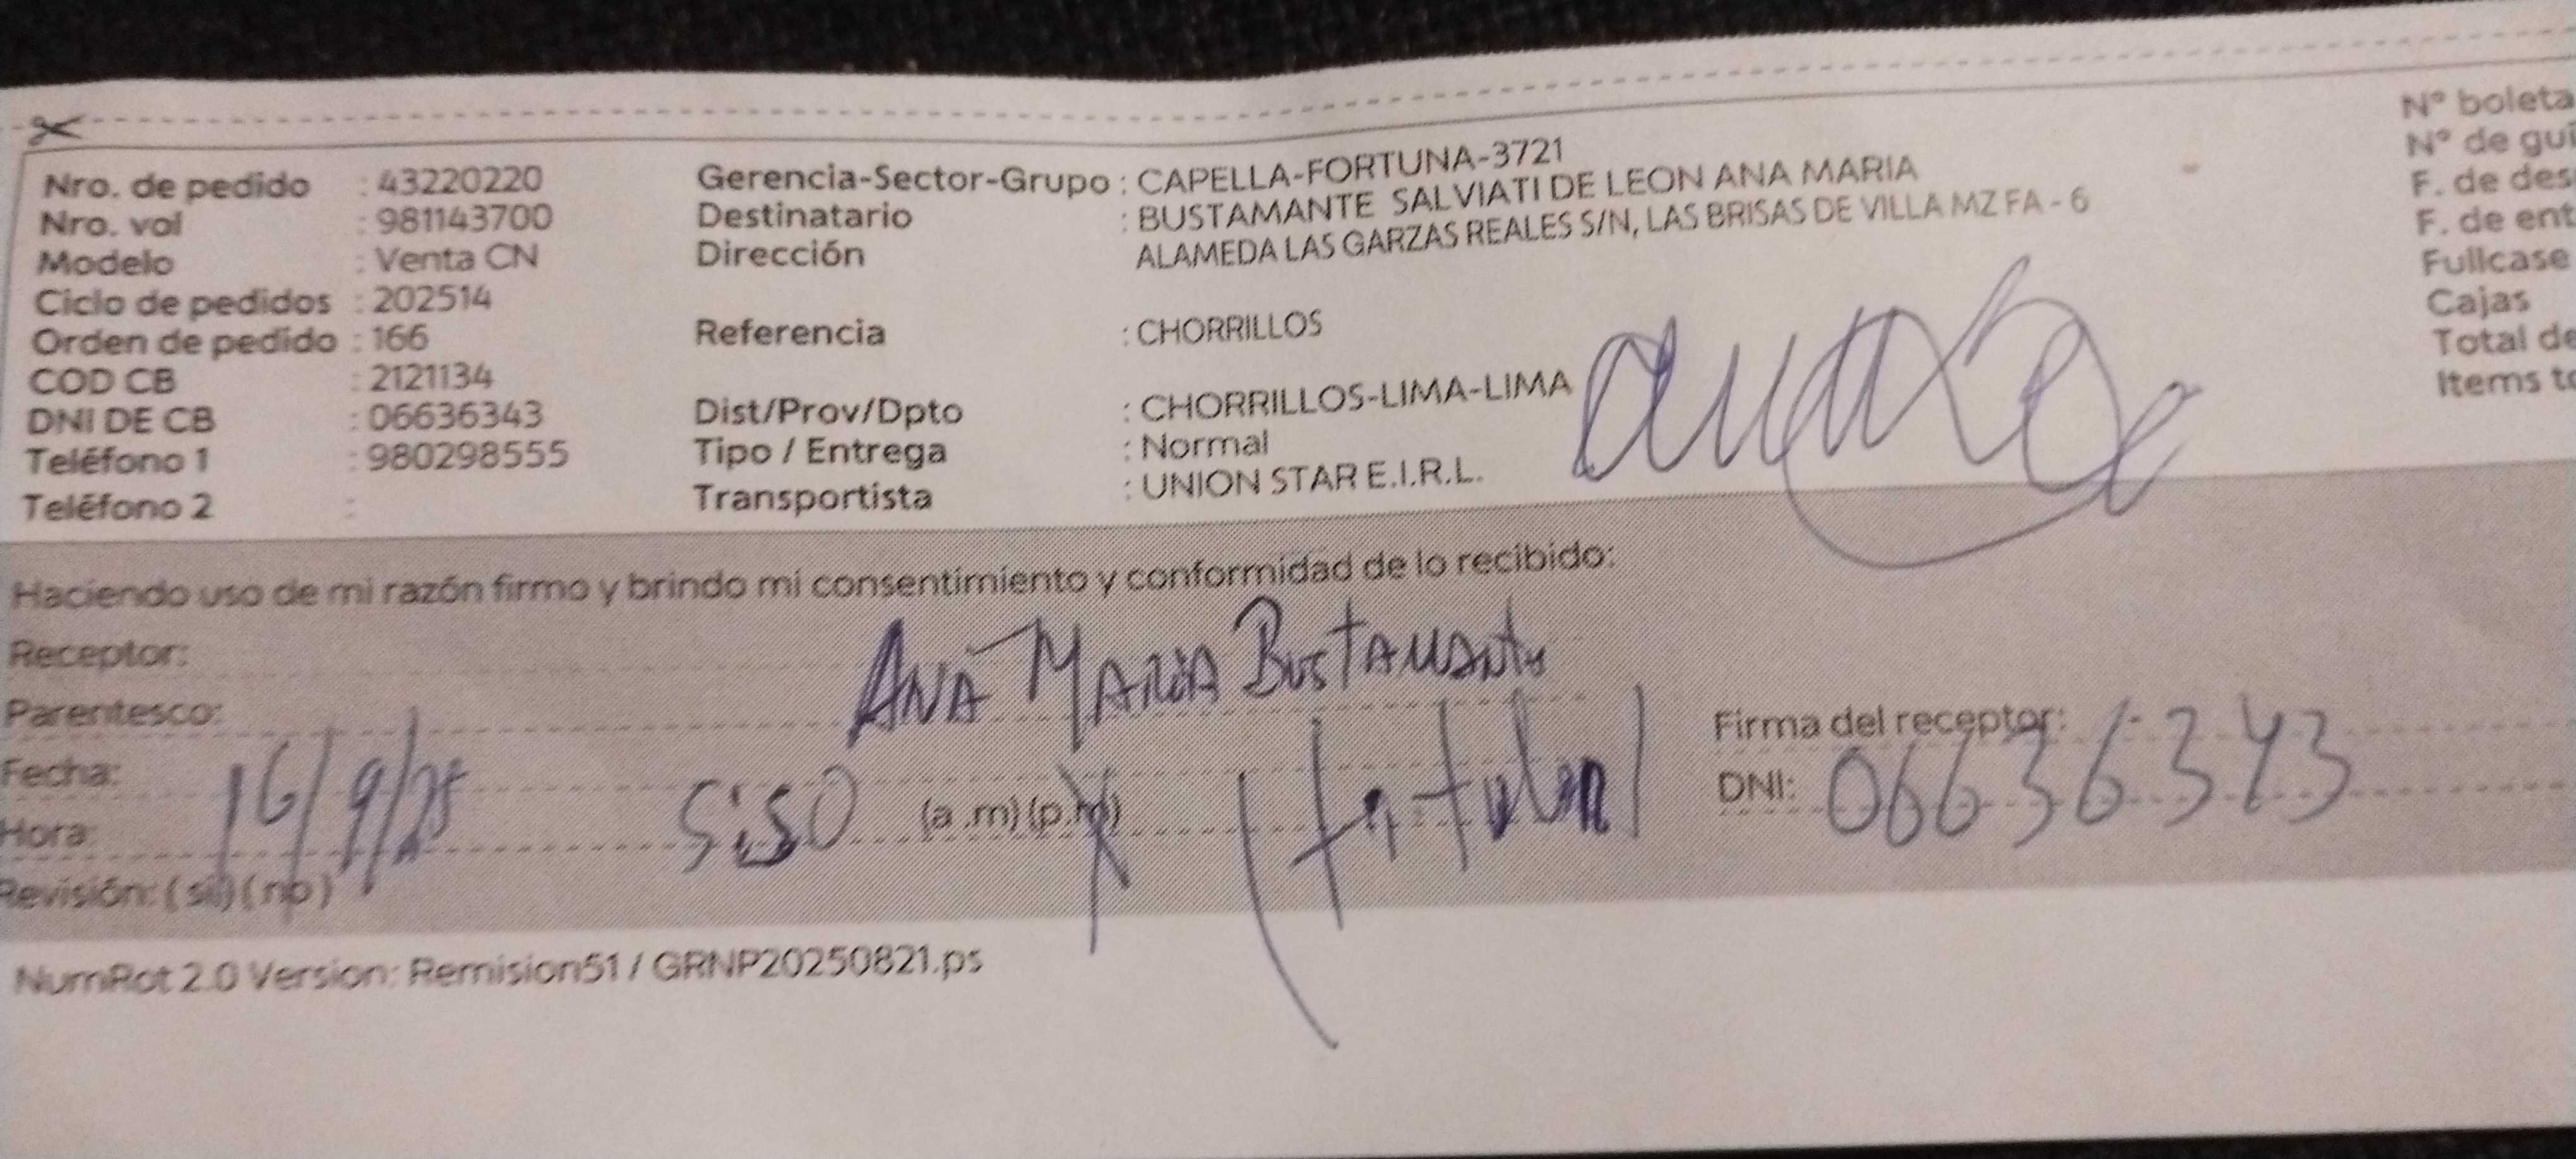 Nro. de pedido : 43220220
Nro. vol : 981143700
Modelo : Venta CN
Ciclo de pedidos : 202514
Orden de pedido : 166
COD CB : 2121134
DNI DE CB : 06636343
Teléfono 1 : 980298555
Teléfono 2 :
Gerencia-Sector-Grupo : CAPELLA-FORTUNA-3721
Destinatario : BUSTAMANTE SALVIATI DE LEON ANA MARIA
Dirección ALAMEDA LAS GARZAS REALES S/N, LAS BRISAS DE VILLA MZ FA - 6
Referencia : CHORRILLOS
Dist/Prov/Dpto : CHORRILLOS-LIMA-LIMA
Tipo / Entrega : Normal
Transportista : UNION STAR E.I.R.L.
N° boleta
N° de gui
F. de des
F. de ent
Fullcase
Cajas
Total de
Items to
Haciendo uso de mi razón firmo y brindo mi consentimiento y conformidad de lo recibido:
Receptor: ANA MARIA BUSTAMANTE
Parentesco:
Firma del receptor:
Fecha: 16/9/25
DNI: 06636343
Hora: 5:50 (a .m) (p.m)
Revisión: (si) (no)
NumRot 2.0 Version: Remision51 / GRNP20250821.ps